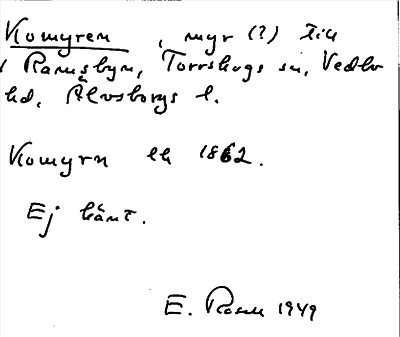 Komyren, myr (?) till
Ranusbyn, Torrskogs sn, Vedbo
hd, Älvsborgs l.
Komyrn ek 1862.
Ej känt.
E. Rosell 1949